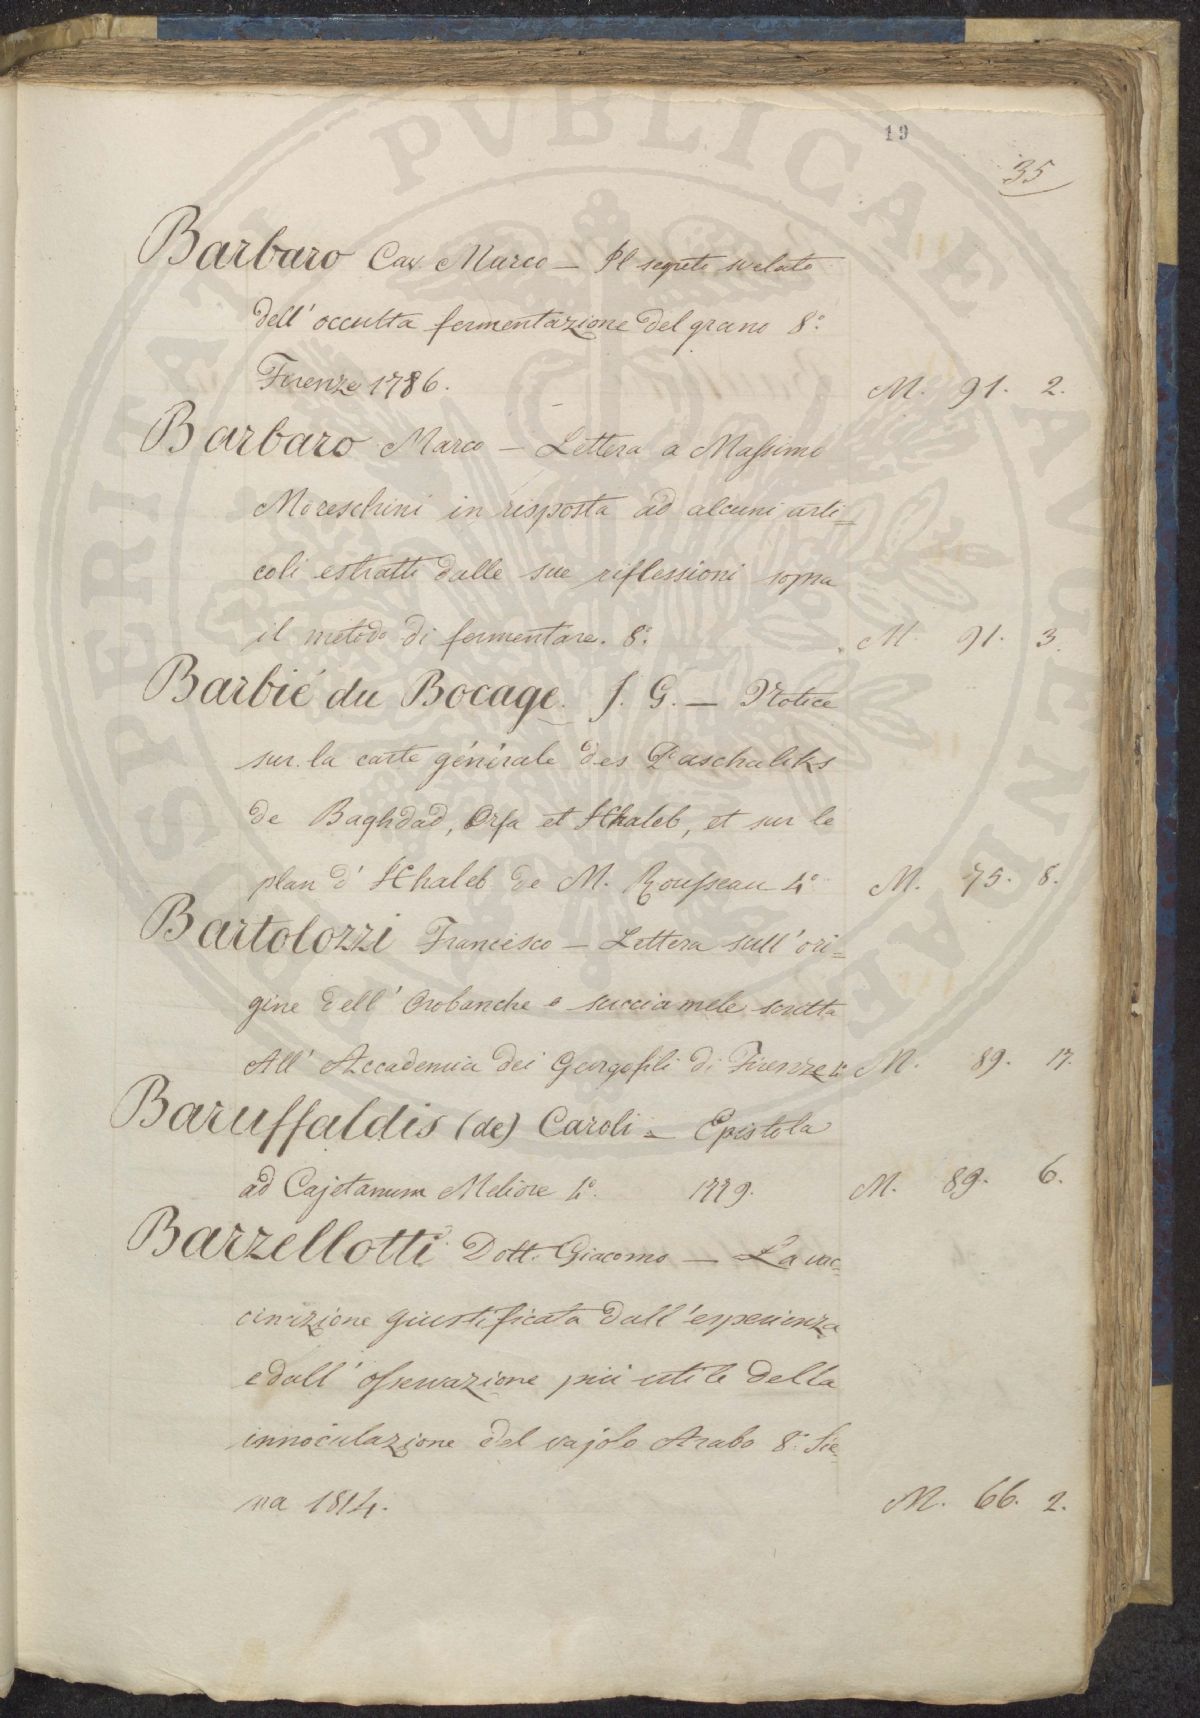 19
35
Barbaro Cav. Marco — Il segreto svelato
dell' occulta fermentazione del grano 8.°
Firenze 1786. M. 91. 2.
Barbaro Marco — Lettera a Massimo
Moreschini in risposta ad alcuni arti=
coli estratti dalle sue riflessioni sopra
il metodo di fermentare. 8.° M. 91. 3.
Barbié du Bocage. J. G. — Notice
sur la carte générale des Paschaliks
de Baghdad, Orfa et Hhaleb, et sur le
plan d' Hhaleb de M. Rousseau 4.° M. 75. 8.
Bartolozzi Francesco — Lettera sull' ori=
gine dell' Orobanche o succiamele scritta
All' Accademia dei Georgofili di Firenze 4.° M. 89. 17.
Baruffaldis (de) Caroli — Epistola
ad Cajetanum Meliore 4.° 1779. M. 89. 6.
Barzellotti Dott. Giacomo — La vac=
cinazione giustificata dall' esperienza
e dall' osservazione più utile della
innoculazione del vajolo Arabo 8.° Sie=
na 1814. M. 66. 2.
PVBLICAE